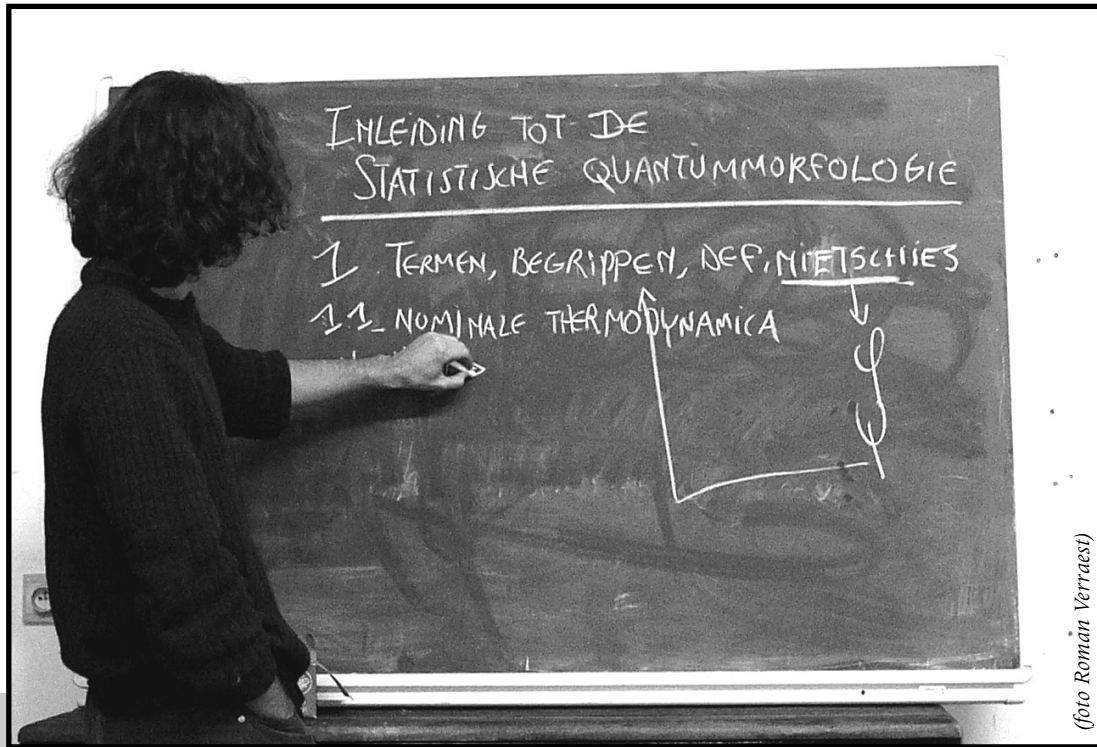 INLEIDING TOT DE
STATISTISCHE QUANTUMMORFOLOGIE
1. TERMEN, BEGRIPPEN, DEF, NIETSCHIES
11_ NOMINALE THERMODYNAMICA
φ
ψ
(foto Roman Verraest)